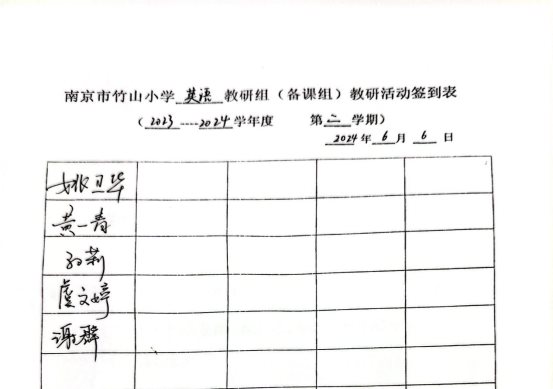 南京市竹山小学 英语 教研组（备课组）教研活动签到表
（ 2023----2024 学年度 第 二 学期）
2024 年 6 月 6 日
姚卫华
黄一春
孙莉
虞文婷
谢群